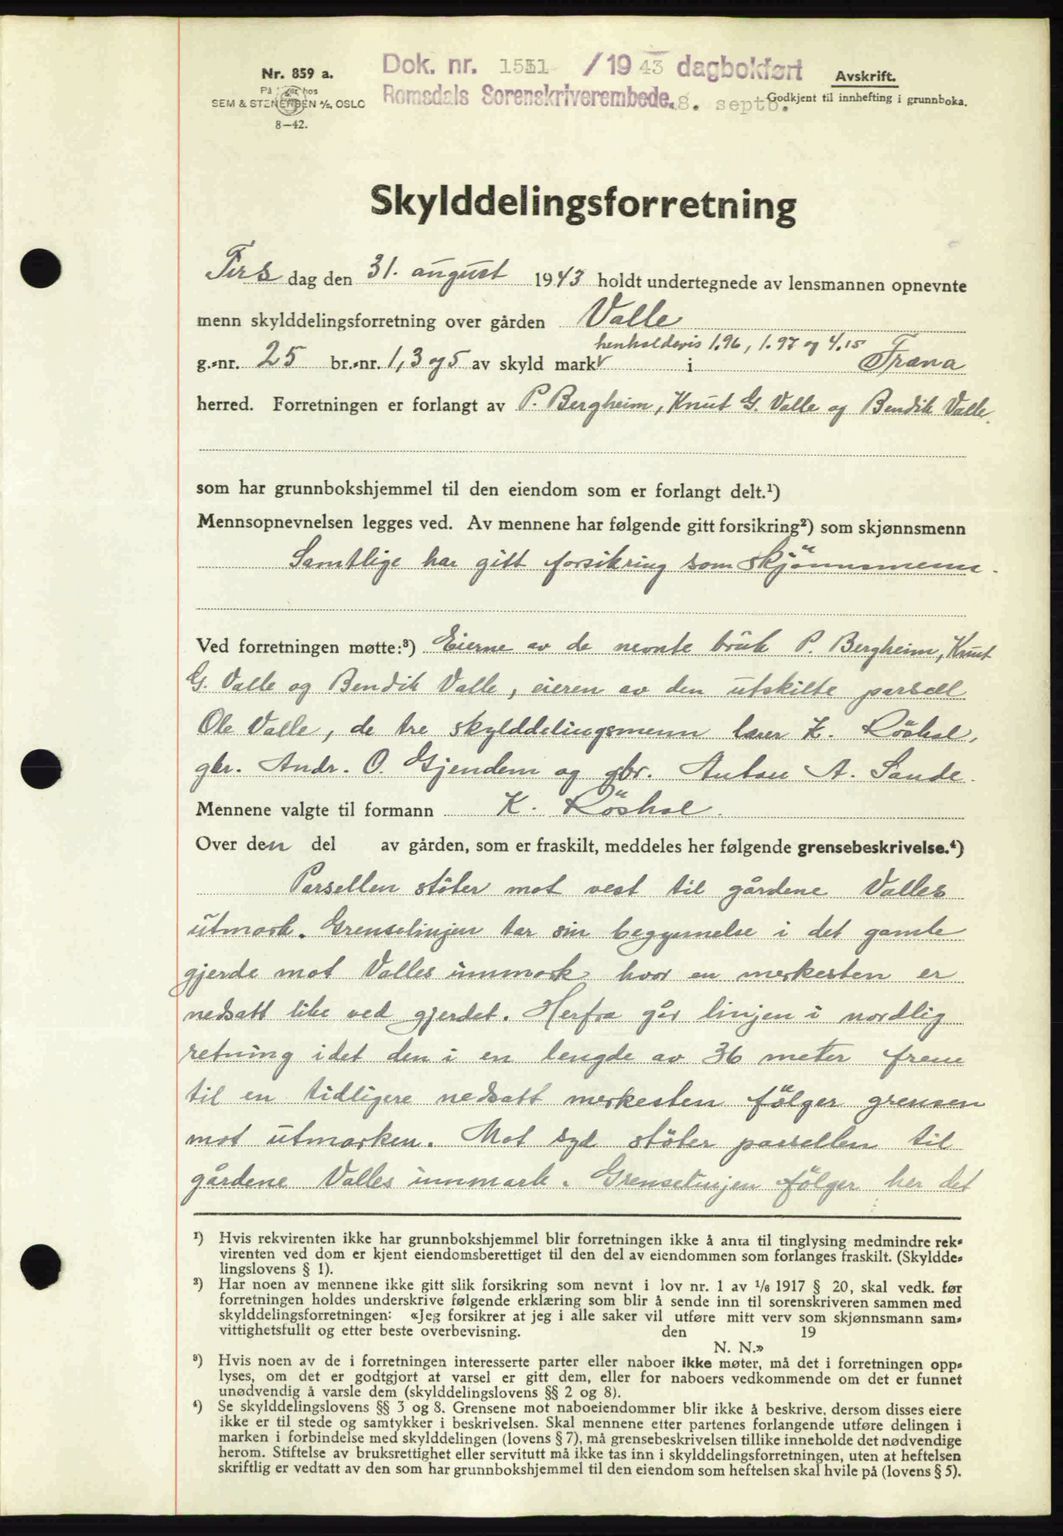 Nr. 859 a.
SEM & STENERSEN A/S, OSLO
8-42.
Dok. nr. 1531 /1943 dagbokført
Romsdals Sorenskriverembede. 8. septb.
Avskrift.
Godkjent til innhefting i grunnboka.
Skylddelingsforretning
Tirs dag den 31. august 1943 holdt undertegnede av lensmannen opnevnte
menn skylddelingsforretning over gården Valle
henholdsvis 1.96, 1.97 og 4.15
g.-nr. 25 br.-nr. 1, 3 og 5 av skyld mark i Fræna
herred. Forretningen er forlangt av P. Bergheim, Knut G. Valle og Bendik Valle.
som har grunnbokshjemmel til den eiendom som er forlangt delt.¹)
Mennsopnevnelsen legges ved. Av mennene har følgende gitt forsikring²) som skjønnsmenn
Samtlige har gitt forsikring som skjönnsmenn.
Ved forretningen møtte:³) Eierne av de nevnte bruk P. Bergheim, Knut
G. Valle og Bendik Valle, eieren av den utskilte parsell
Ole Valle, de tre skylddelingsmenn lærer K. Röshol,
gbr. Andr. O. Gjendem og gbr. Anton A. Sande.
Mennene valgte til formann K. Röshol.
Over den del av gården, som er fraskilt, meddeles her følgende grensebeskrivelse.⁴)
Parsellen støter mot vest til gårdene Valles
utmark. Grenselinjen tar sin begynnelse i det gamle
gjerde mot Valles innmark hvor en merkesten er
nedsatt like ved gjerdet. Herfra går linjen i nordlig
retning i det den i en lengde av 36 meter frem
til en tidligere nedsatt merkesten fölger grensen
mot utmarken. Mot syd støter parsellen til
gårdene Valles innmark. Grenselinjen fölger her det
¹) Hvis rekvirenten ikke har grunnbokshjemmel blir forretningen ikke å anta til tinglysing medmindre rek-
virenten ved dom er kjent eiendomsberettiget til den del av eiendommen som forlanges fraskilt. (Skyldde-
lingslovens § 1).
²) Har noen av mennene ikke gitt slik forsikring som nevnt i lov nr. 1 av 1/6 1917 § 20, skal vedk. før
forretningen holdes underskrive følgende erklæring som blir å sende inn til sorenskriveren sammen med
skylddelingsforretningen: «Jeg forsikrer at jeg i alle saker vil utføre mitt verv som skjønnsmann sam-
vittighetsfullt og etter beste overbevisning. den 19
N. N.»
³) Hvis noen av de i forretningen interesserte parter eller naboer ikke møter, må det i forretningen opp-
lyses, om det er godtgjort at varsel er gitt dem, eller for naboers vedkommende om det er funnet
unødvendig å varsle dem (skylddelingslovens §§ 2 og 8).
⁴) Se skylddelingslovens §§ 3 og 8. Grensene mot naboeiendommer blir ikke å beskrive, dersom disses eiere
ikke er til stede og samtykker i beskrivelsen. Skal mennene etter partenes forlangende utføre delingen i
marken i forbindelse med skylddelingen (lovens § 7), må grensebeskrivelsen tillike inneholde det nødvendige
herom. Stiftelse av bruksrettighet eller servitutt må ikke tas inn i skylddelingsforretningen, uten at heftelsen
skriftlig er vedtatt av den som har grunnbokshjemmel til den eiendom som heftelsen skal hvile på (lovens § 5).